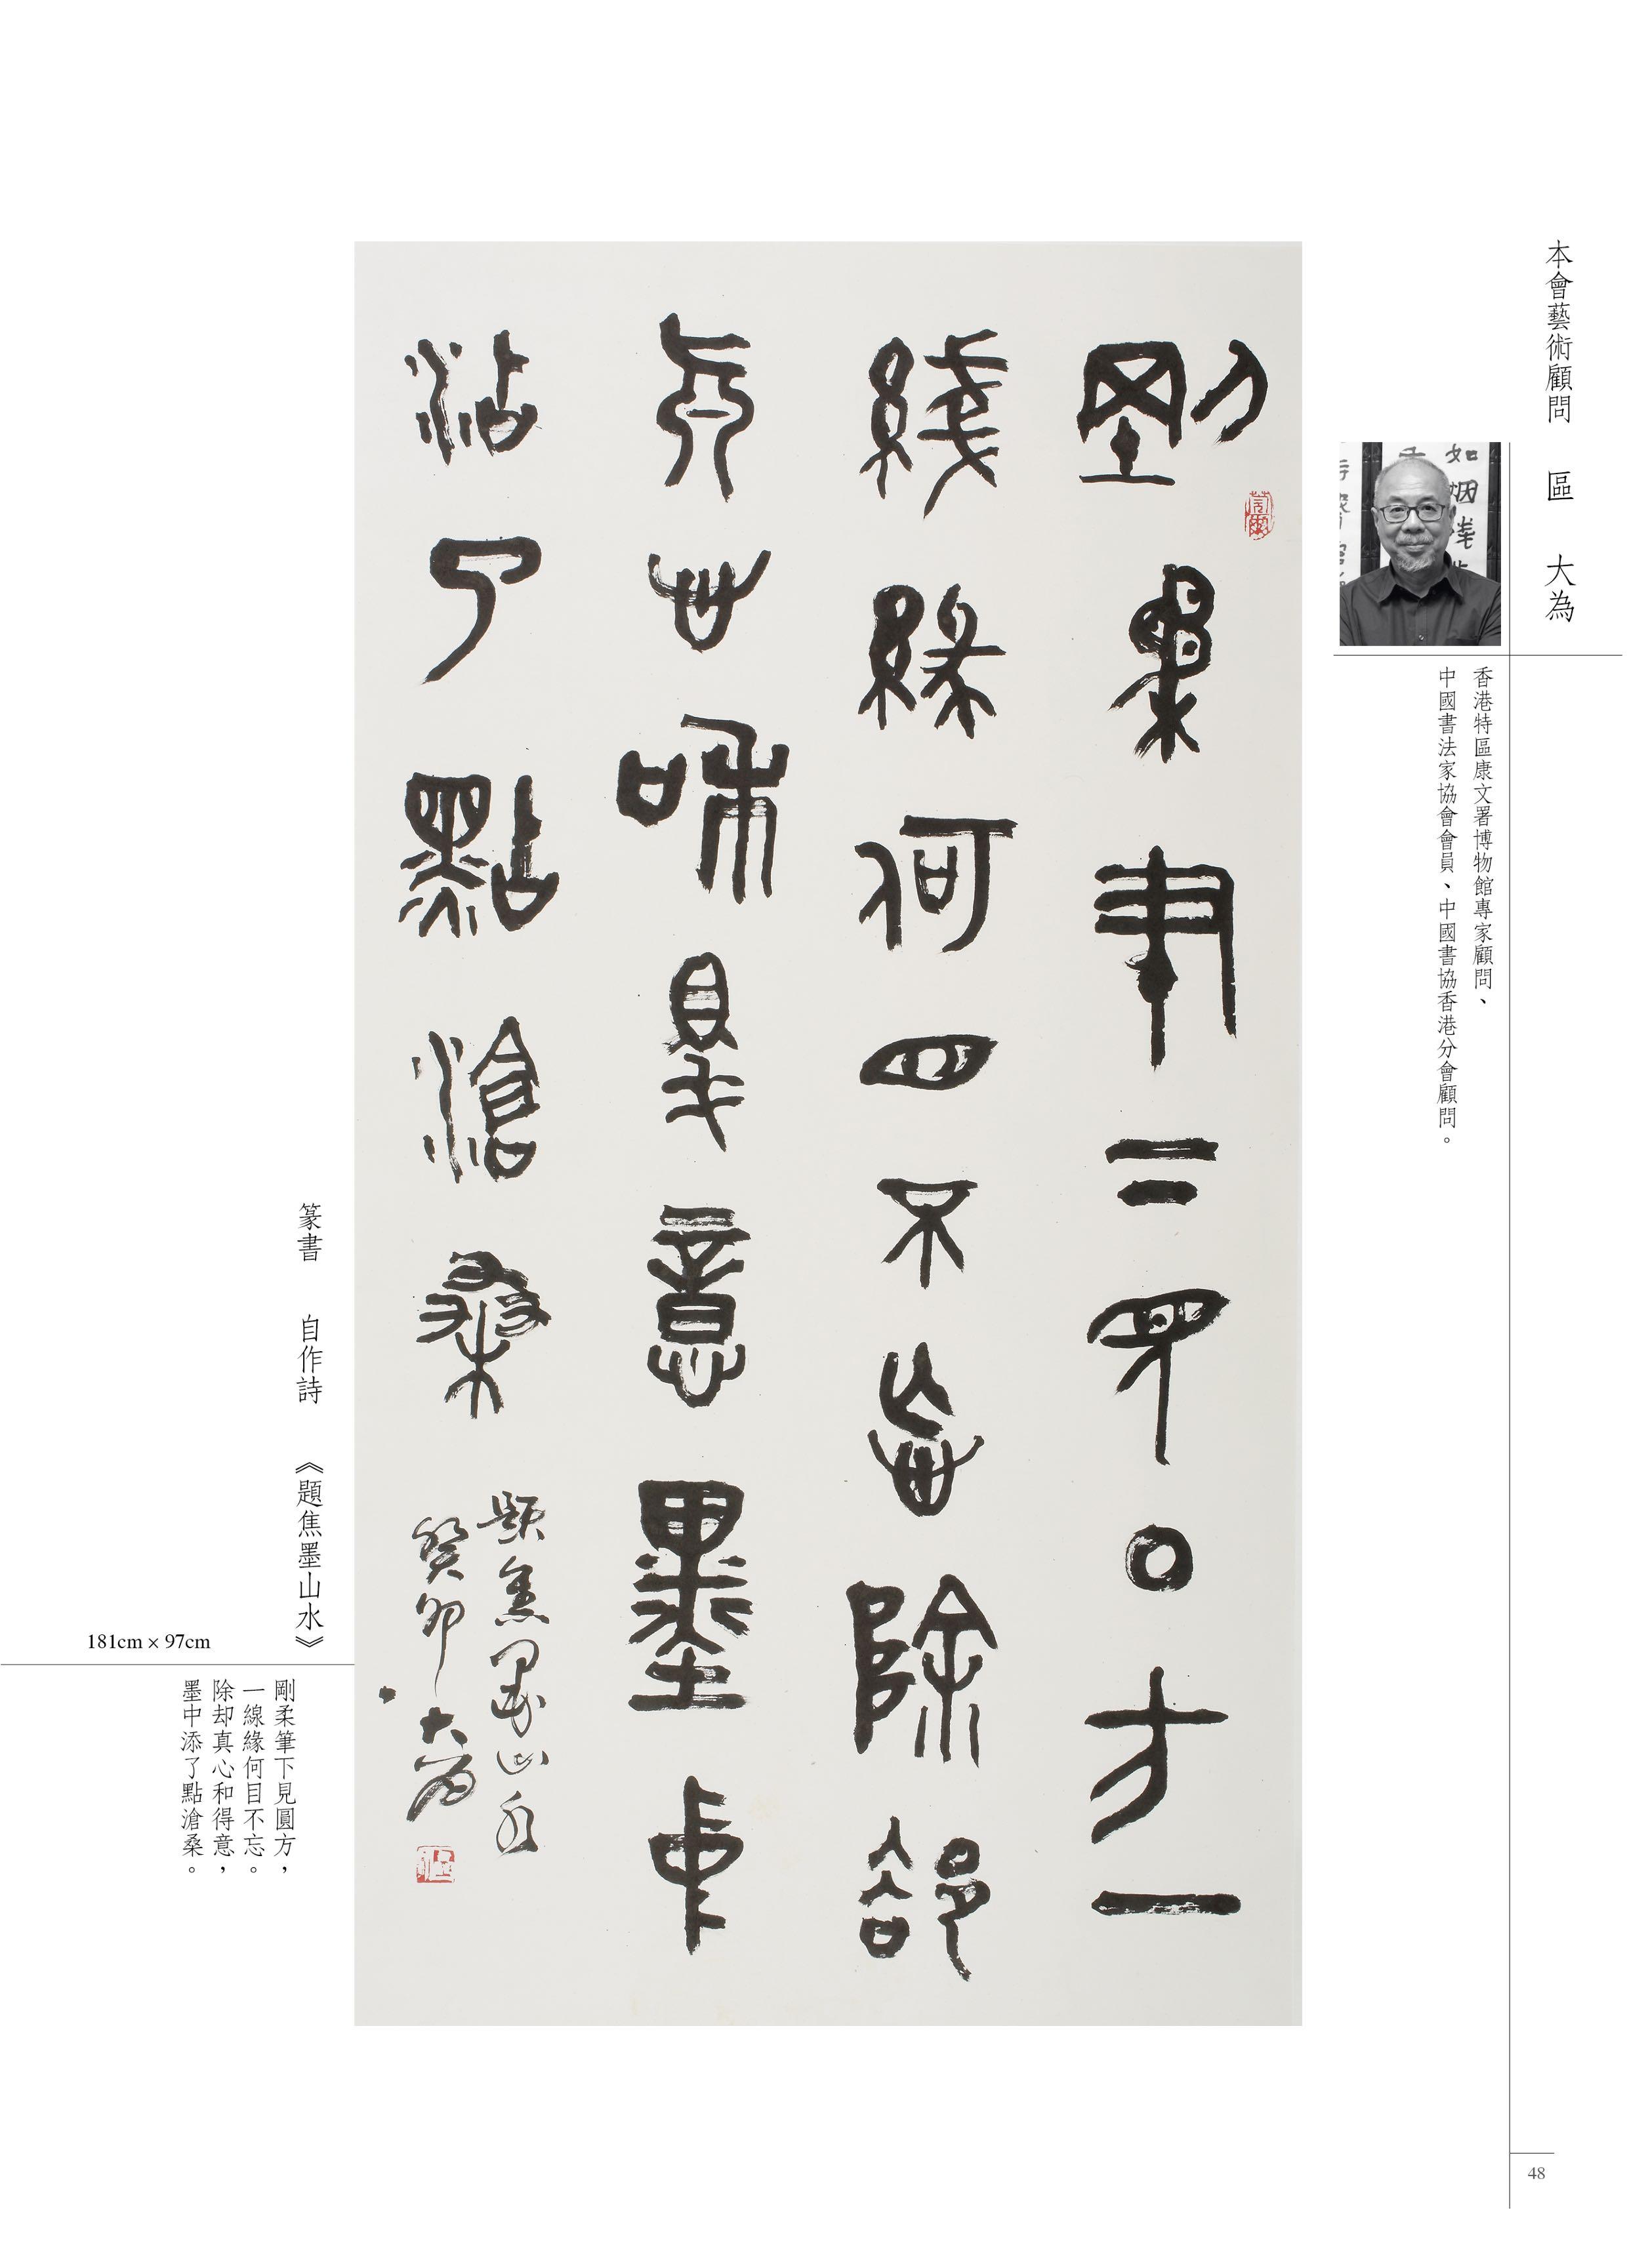 本會藝術顧問 區大為
香港特區康文署博物館專家顧問、
中國書法家協會會員、中國書協香港分會顧問。
剛柔筆下見圓方一
綫緣何目不忘除卻
真心和得意墨中
沾了點滄桑
題焦墨山水
癸卯 大為
篆書 自作詩 《題焦墨山水》
181cm × 97cm
剛柔筆下見圓方，
一線緣何目不忘。
除却真心和得意，
墨中添了點滄桑。
48